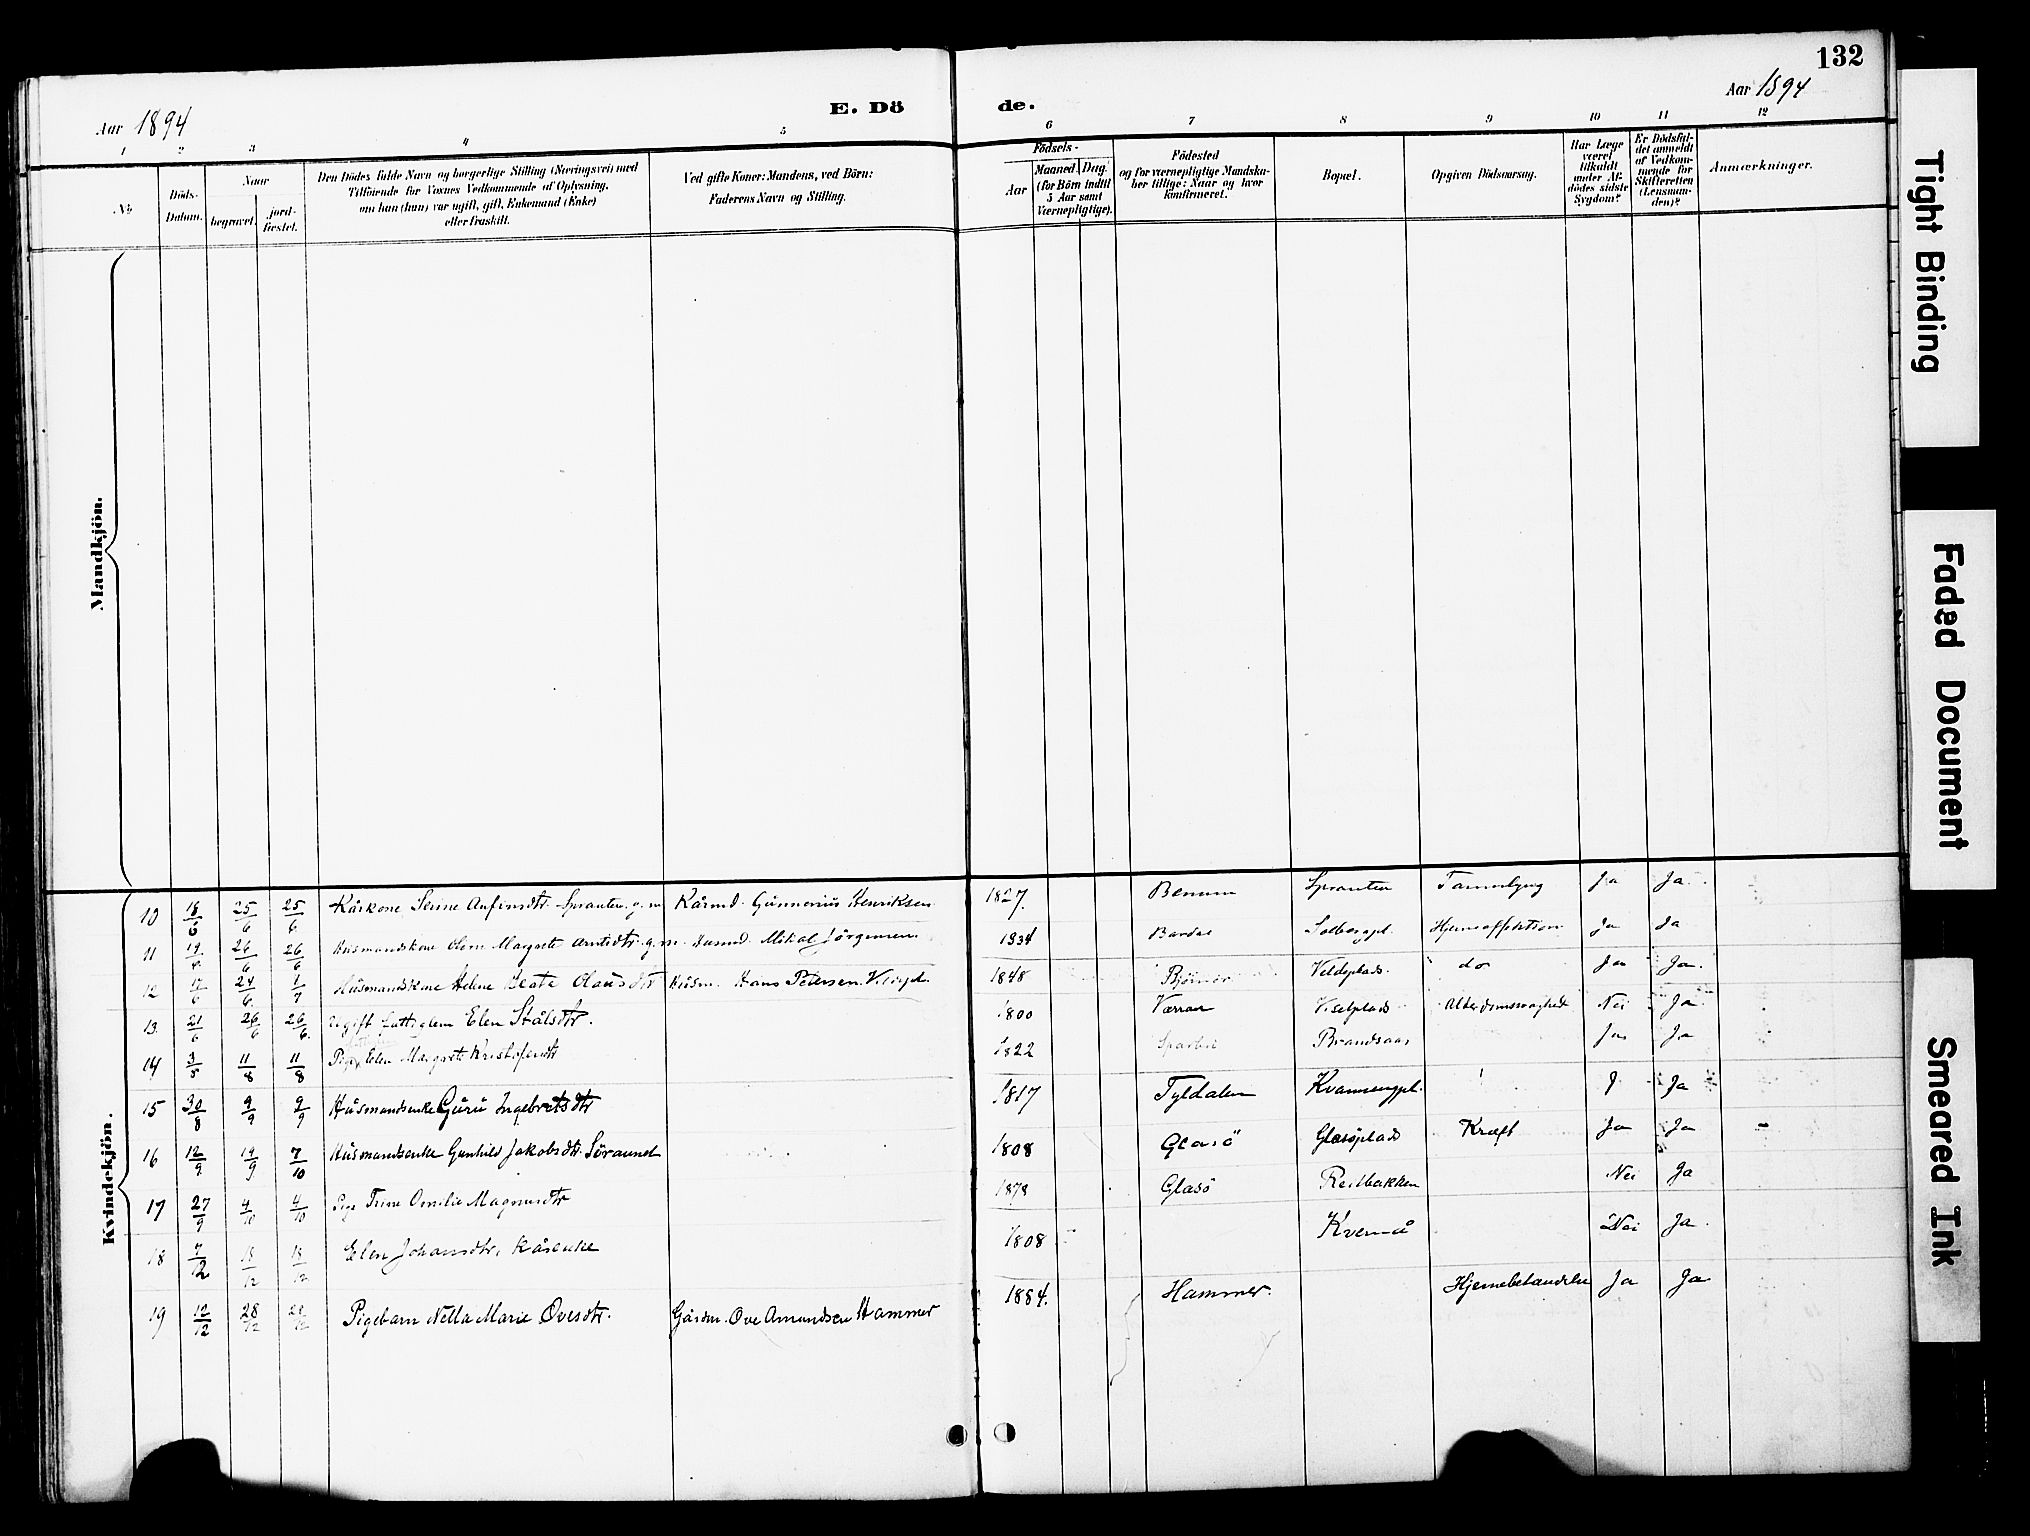 132
Aar 1894
E. Dö
de.
Aar 1894
1 2 3 4 5 6 7 8 9 10 11 12
No
Döds-Datum.
Naar
begravet.
jord-fæstet.
Den Dödes fulde Navn og borgerlige Stilling (Næringsvei) med
Tilföiende for Voxnes Vedkommende af Oplysning,
om han (hun) var ugift, gift, Enkemand (Enke)
eller fraskilt.
Ved gifte Koner: Mandens, ved Börn:
Faderens Navn og Stilling.
Födsels-
Aar
Maaned. Dag.
(for Börn indtil
5 Aar samt
Værnepligtige).
Födested
og for værnepligtige Mandska-
ber tillige: Naar og hvor
konfirmeret.
Bopæl.
Opgiven Dödsaarsag.
Har Læge
været
tilkaldt
under Af-
dödes sidste
Sygdom?
Er Dödsfal-
det anmeldt
af Vedkom-
mende for
Skifteretten
(Lensman-
den)?
Anmærkninger.
Mandkjön.
Kvindekjön.
10 18/6 25/6 25/6 Kårkone Serine Anfinsdtr. Spranten g. m. Kårmd. Gunnerius Henriksen 1827. Benum Spranten Ja Ja.
11 26/6 26/6 Husmandskone Margrete Arntsdtr. g. m. Husmd. Mikal Jörgensen 1834 Bardal Solbergpl. Hjerneaffektion Ja Ja
12 24/6 1/7 Husmandskone Helene Beate Olausdtr Husm. Hans Petersen 1848 Bjørnør Veldeplads do Ja Ja.
13. 21/6 26/6 26/6. Ugift fattiglem Elen Stålsdtr. 1800 Værran Alderdomssvaghed Nei Ja
14 3/8 11/8 11/8 Pige Elen Margrete Kristofersdtr 1822 Sparbu Brandsaas Ja Ja
15 30/8 9/9 9/9 Husmandsenke Guru Ingebretsdtr 1817 Tyldalen Kvammengpl. J Ja
16 12/9 19/9 7/10 Husmandsenke Gunhild Jakobsdtr. Söraunet 1808 Glasö Glasöplads Kræft Ja Ja
17 27/9 4/10 4/10 Pige Trine Omilie Magnusdtr 1878 Glasö Reitbakken Nei Ja
18 7/12 18/12 18/12 Elen Johansdtr, Kårenke 1808 Kvernå Nei Ja.
19 12/12 28/12 28/12 Pigebarn Nella Marie Ovesdtr. Gårdm. Ove Amundsen Hammer 1884. Hammer. Hjernebetændelse Ja Ja
Tight Binding
Faded Document
Smeared Ink